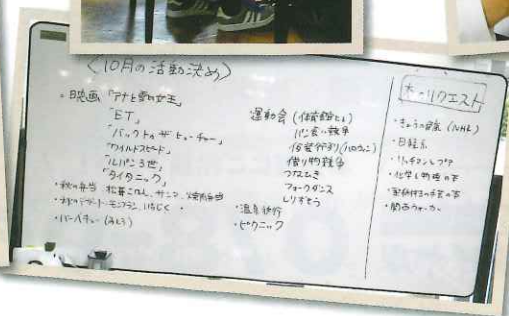 〈10月の活動決め〉
・映画「アナと雪の女王」
「ET」
「バックトゥザフューチャー」
「ワイルドスピード」
「ルパン3世」
「タイタニック」
・秋の弁当 松茸ごはん、サンマ、焼肉弁当
・秋のデザート モンブラン、いちじく
・バーベキュー
運動会(体育館
パン食い競争
仮装行列(ハロウィン)
借り物競争
つなひき
フォークダンス
しりずもう
・温泉旅行
・ピクニック
本のリクエスト
・きょうの健康(NHK)
・日経系
・化学と物理の本
・関西ウォーカー